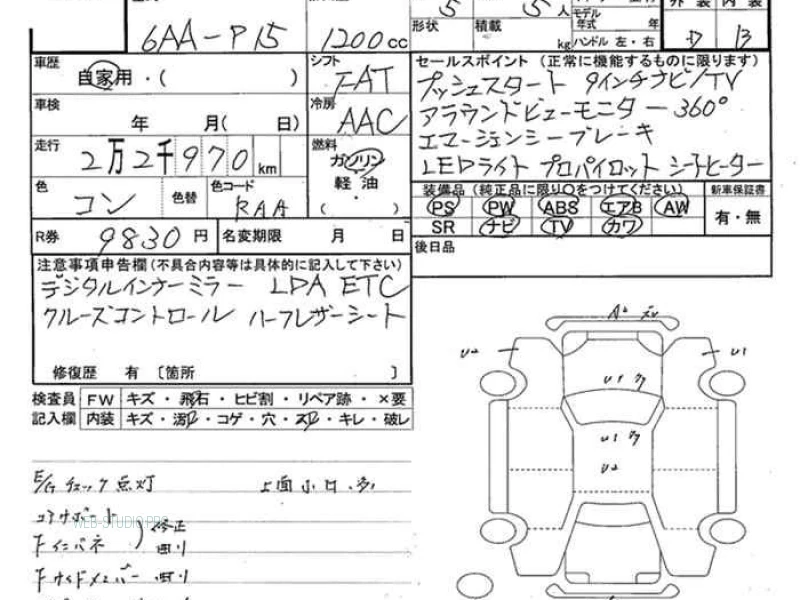 6AA-P15
1200cc
形状 5
積載 5人
kg
モデル年式 年
ハンドル 左・右
車歴 自家用・( )
シフト FAT
車検 年 月( 日)
冷房 AAC
走行 2万2千970km
燃料 ガソリン 軽油・( )
色 コン
色替
色コード RAA
R券 9830円
名変期限 月 日
セールスポイント (正常に機能するものに限ります)
プッシュスタート 9インチナビ/TV
アラウンドビューモニター 360°
エマージェンシーブレーキ
LEDライト プロパイロット シートヒーター
装備品 (純正品に限り○をつけてください)
新車保証書
PS PW ABS エアB AW
SR ナビ TV カワ
有・無
後日品
注意事項申告欄(不具合内容等は具体的に記入して下さい)
デジタルインナーミラー LDA ETC
クルーズコントロール ハーフレザーシート
修復歴 有 〔箇所 〕
検査員 FW キズ・飛石・ヒビ割・リペア跡・×要
記入欄 内装 キズ・ ・コゲ・穴・ ・キレ・破レ
E/Gチェック点灯
コアサポート
修正
WEB-STUDIO.PRO
Fインパネ
Fサイドメンバー
A2
U2
U1
U1
U1
U2